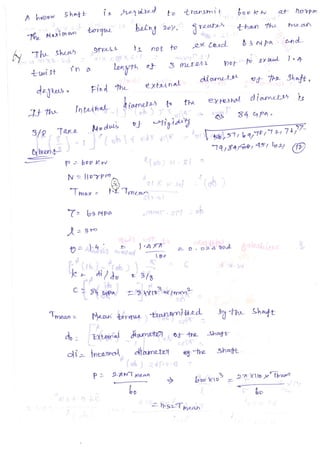 A hollow shaft is required to transmit 600 kW at 110 rpm
The Maximum torque being 20% greater than the mean
The Shear stress is not to exceed 63 MPa and
twist in a length of 3 meters not to exceed 1.4
degrees. Find the external diameter of the shaft,
If the Internal diameter to the external diameter is
3/8 Take Modulus of rigidity 84 GPa.
Given:
P = 600 kW
N = 110 rpm
Tmax = 1.2 Tmean
τ = 63 MPa
l = 3
θ = 1.4 = 1.4 × π / 180 = 0.024 rad
k = di/do = 3/8
C = 84 GPa = 84×10³ N/mm²
Tmean = Mean torque transmitted by the shaft
do = External diameter of the shaft
di = Internal diameter of the shaft
P = 2πNTmean / 60 ⇒ 600×10³ = 2π×110×Tmean / 60
= 11.52 Tmean